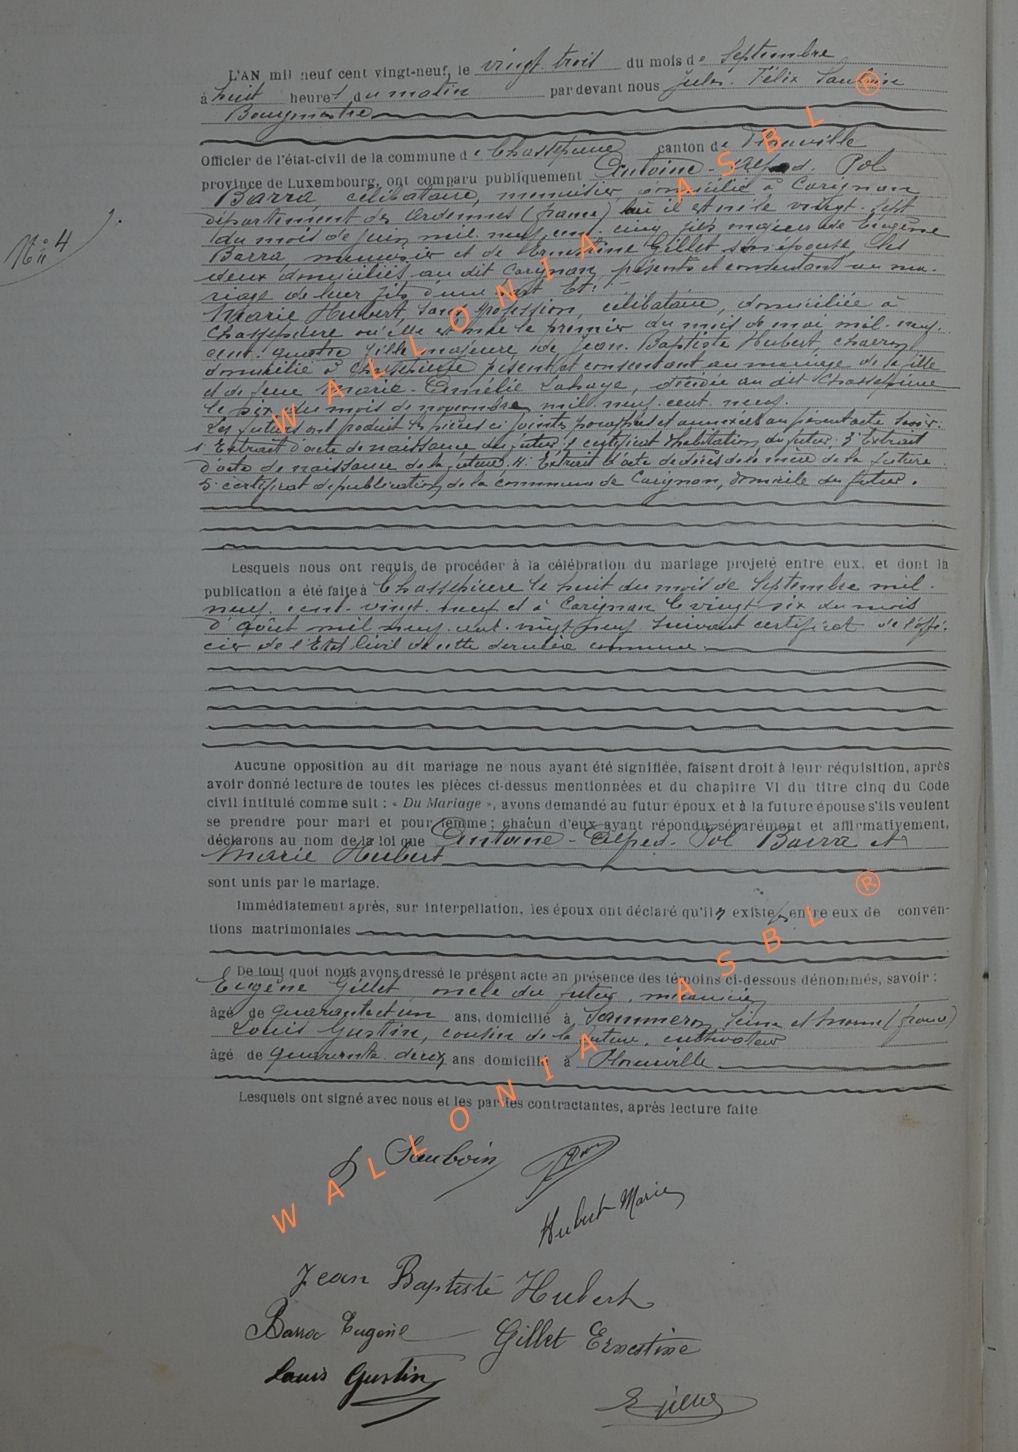 N° 4
L'AN mil neuf cent vingt-neuf, le vingt trois du mois de Septembre
à huit heures du matin par devant nous Jules Félix Sauboin
Bourgmestre
Officier de l'état-civil de la commune de Chassepierre canton de Florenville
province de Luxembourg, ont comparu publiquement Antoine-Alfred. Pol
Barra, célibataire, menuisier domicilié à Carignan
département des Ardennes (france) où il est né le vingt-sept
du mois de juin mil neuf cent cinq fils majeur de Eugène
Barra, menuisier et de Ernestine Gillet son épouse, les
deux domiciliés au dit Carignan, présents et consentant au ma-
riage de leur fils d'une part Et :
Marie Hubert, sans profession, célibataire, domiciliée à
Chassepierre où elle est née le premier du mois de mai mil-neuf-
cent-quatre fille majeure de Jean-Baptiste Hubert, charron
domicilié à Chassepierre présent et consentant au mariage de sa fille
et de feue Marie-Amélie Lahaye, décédée au dit Chassepierre
le six du mois de novembre mil-neuf-cent-neuf.
Les futurs ont produit les pièces ci jointes paraphées et annexées au présent acte savoir.
1° Extrait d'acte de naissance du futur 2° certificat d'habitation du futur. 3° Extrait
d'acte de naissance de la future. 4° Extrait d'acte de décès de la mère de la future.
5° certificat de publication de la commune de Carignan, domicile du futur.
Lesquels nous ont requis de procéder à la célébration du mariage projeté entre eux, et dont la
publication a été faite à Chassepierre le huit du mois de Septembre mil-
neuf-cent-vingt-neuf et à Carignan le vingt six du mois
d'août mil neuf-cent-vingt neuf suivant certificat de l'offi-
cier de l'Etat Civil de cette dernière commune.
Aucune opposition au dit mariage ne nous ayant été signifiée, faisant droit à leur réquisition, après
avoir donné lecture de toutes les pièces ci-dessus mentionnées et du chapitre VI du titre cinq du Code
civil intitulé comme suit : « Du Mariage », avons demandé au futur époux et à la future épouse s'ils veulent
se prendre pour mari et pour femme ; chacun d'eux ayant répondu séparément et affirmativement,
déclarons au nom de la loi que Antoine-Alfred. Pol Barra et
Marie Hubert
sont unis par le mariage.
Immédiatement après, sur interpellation, les époux ont déclaré qu'il n existe pas entre eux de conven-
tions matrimoniales
De tout quoi nous avons dressé le présent acte en présence des témoins ci-dessous dénommés, savoir :
Eugène Gillet, oncle du futur, mécanicien
âgé de quarante et un ans, domicilié à Sammeron Seine et Marne (france)
Louis Gustin, cousin de la future, cultivateur
âgé de quarante-deux ans domicilié à Florenville
Lesquels ont signé avec nous et les parties contractantes, après lecture faite
J Sauboin
Hubert Marie
Jean Baptiste Hubert
Barra Eugène Gillet Ernestine
Louis Gustin
WALLONIA ASBL ®
WALLONIA ASBL ®